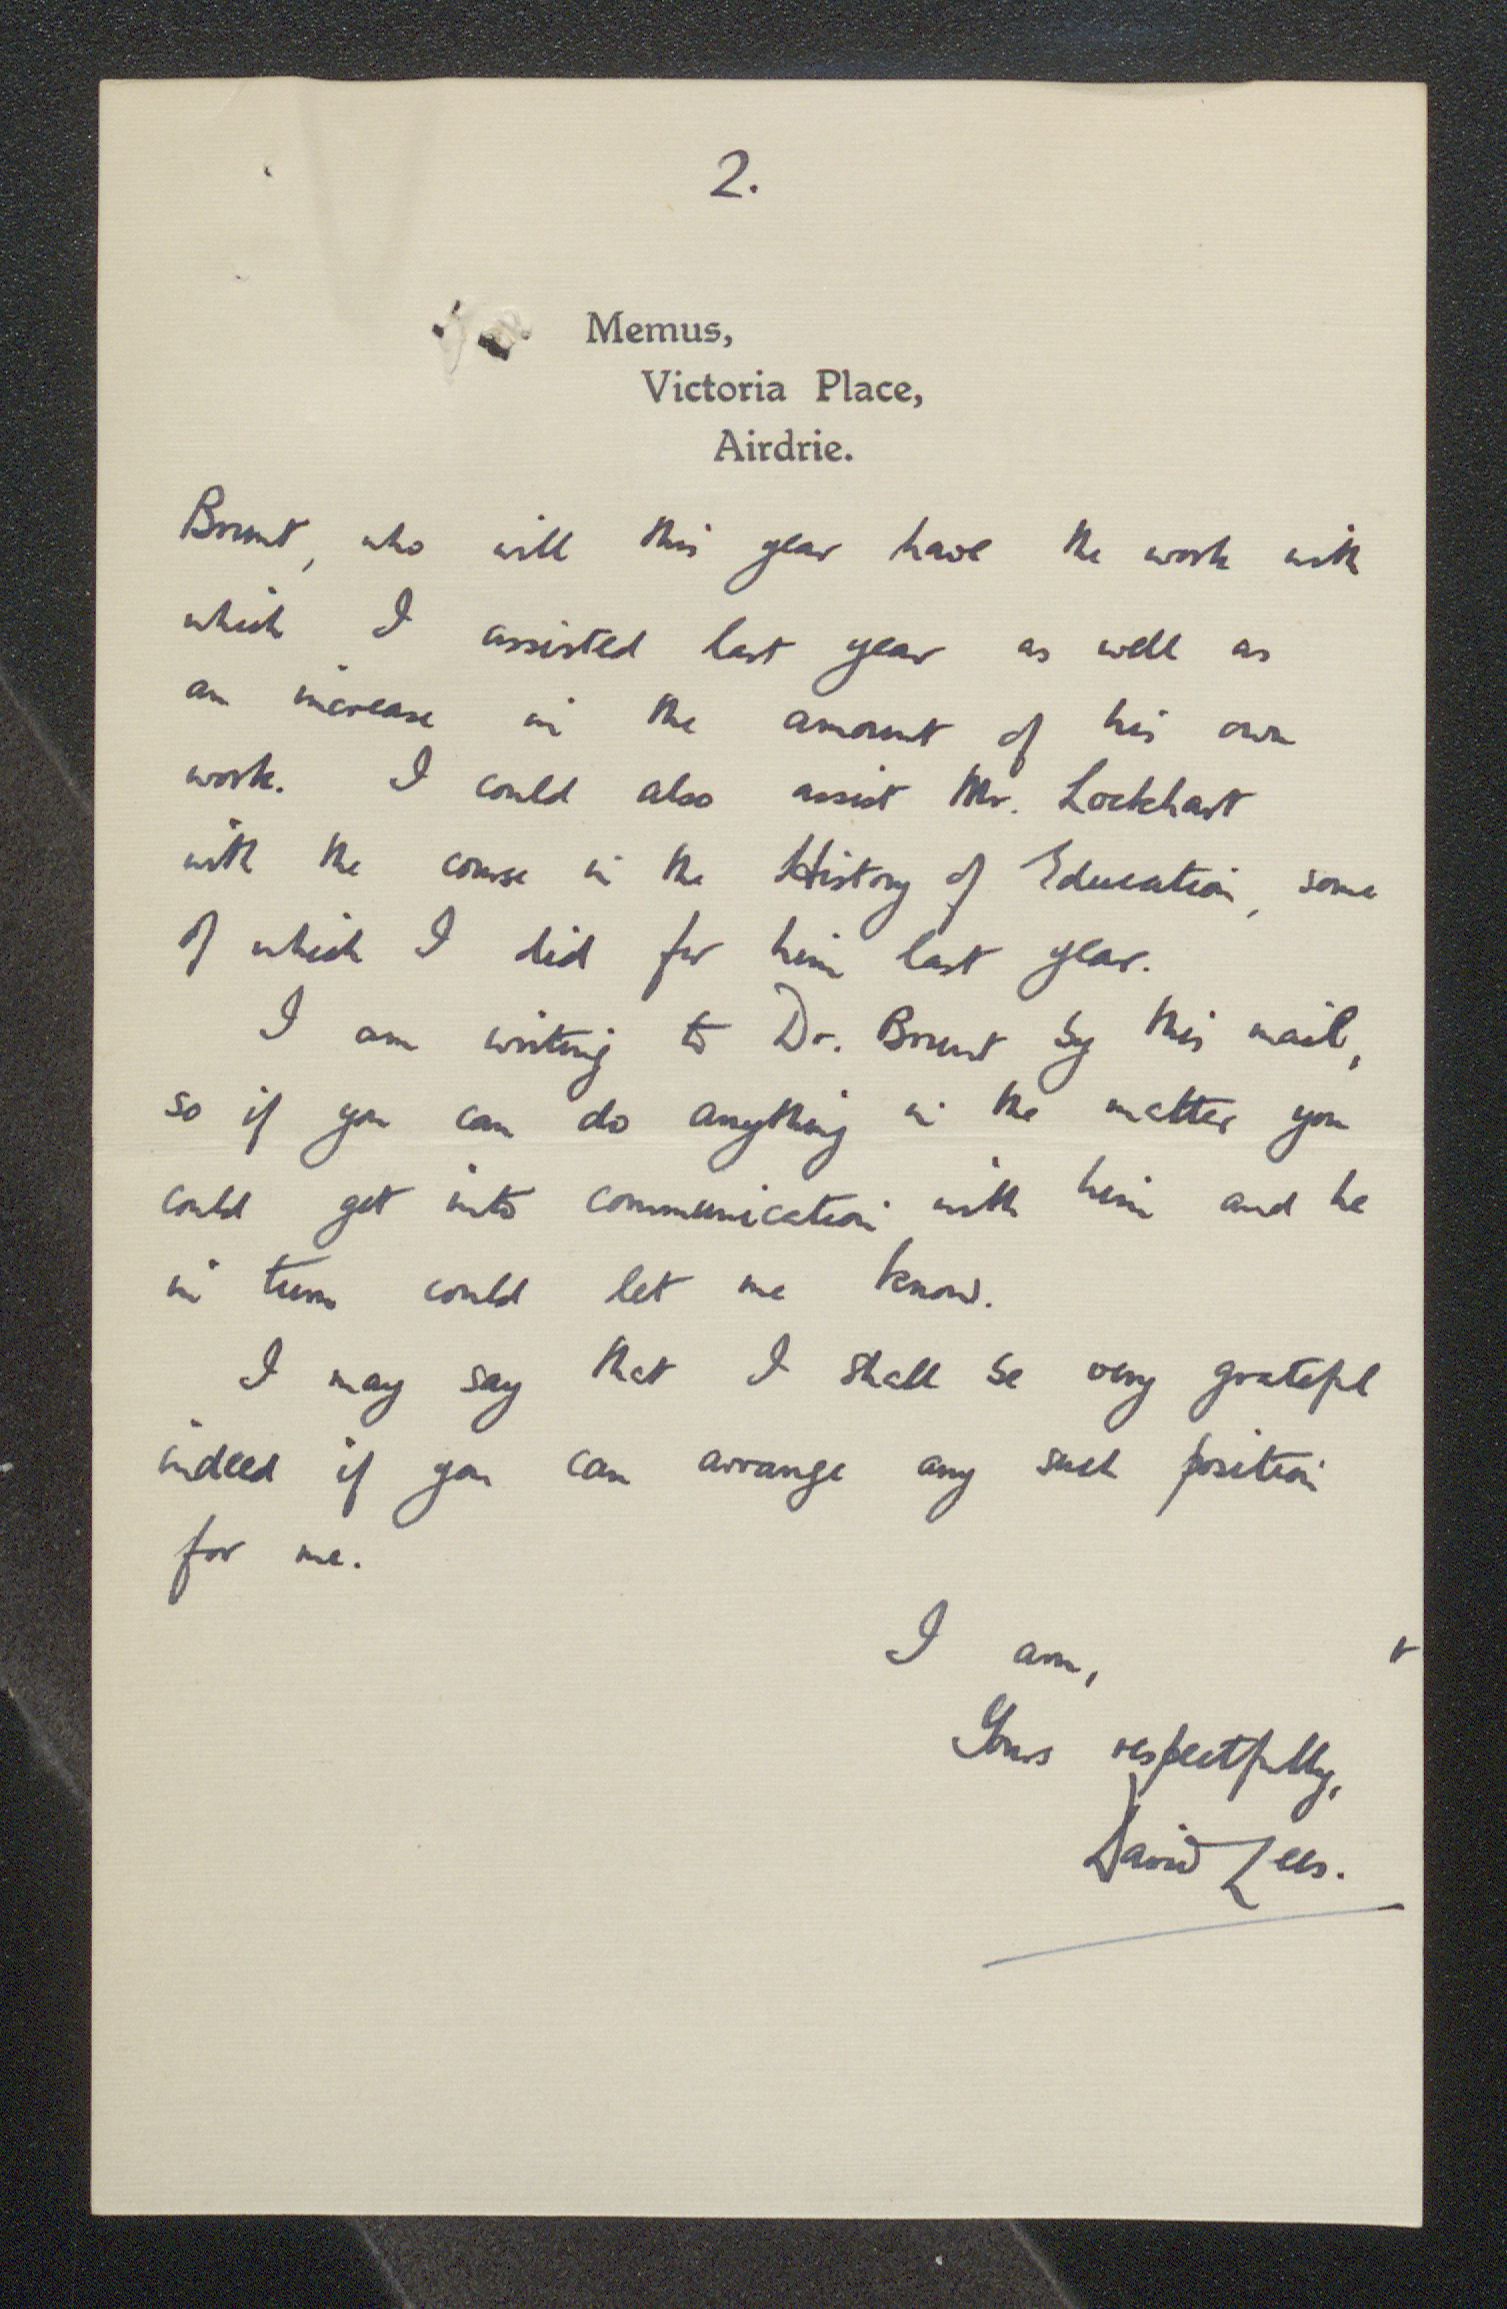 2.
Memus,
Victoria Place,
Airdrie.
Brunt, who will this year have the work with
which I assisted last year as well as
an increase in the amount of his own
work. I could also assist Mr. Lockhart
with the course in the History of Education, some
of which I did for him last year.
I am writing to Dr. Brunt by this mail,
so if you can do anything in the matter you
could get into communication with him and he
in turn could let me know.
I may say that I shall be very grateful
indeed if you can arrange any such position
for me.
I am,
Yours respectfully,
David Lees.